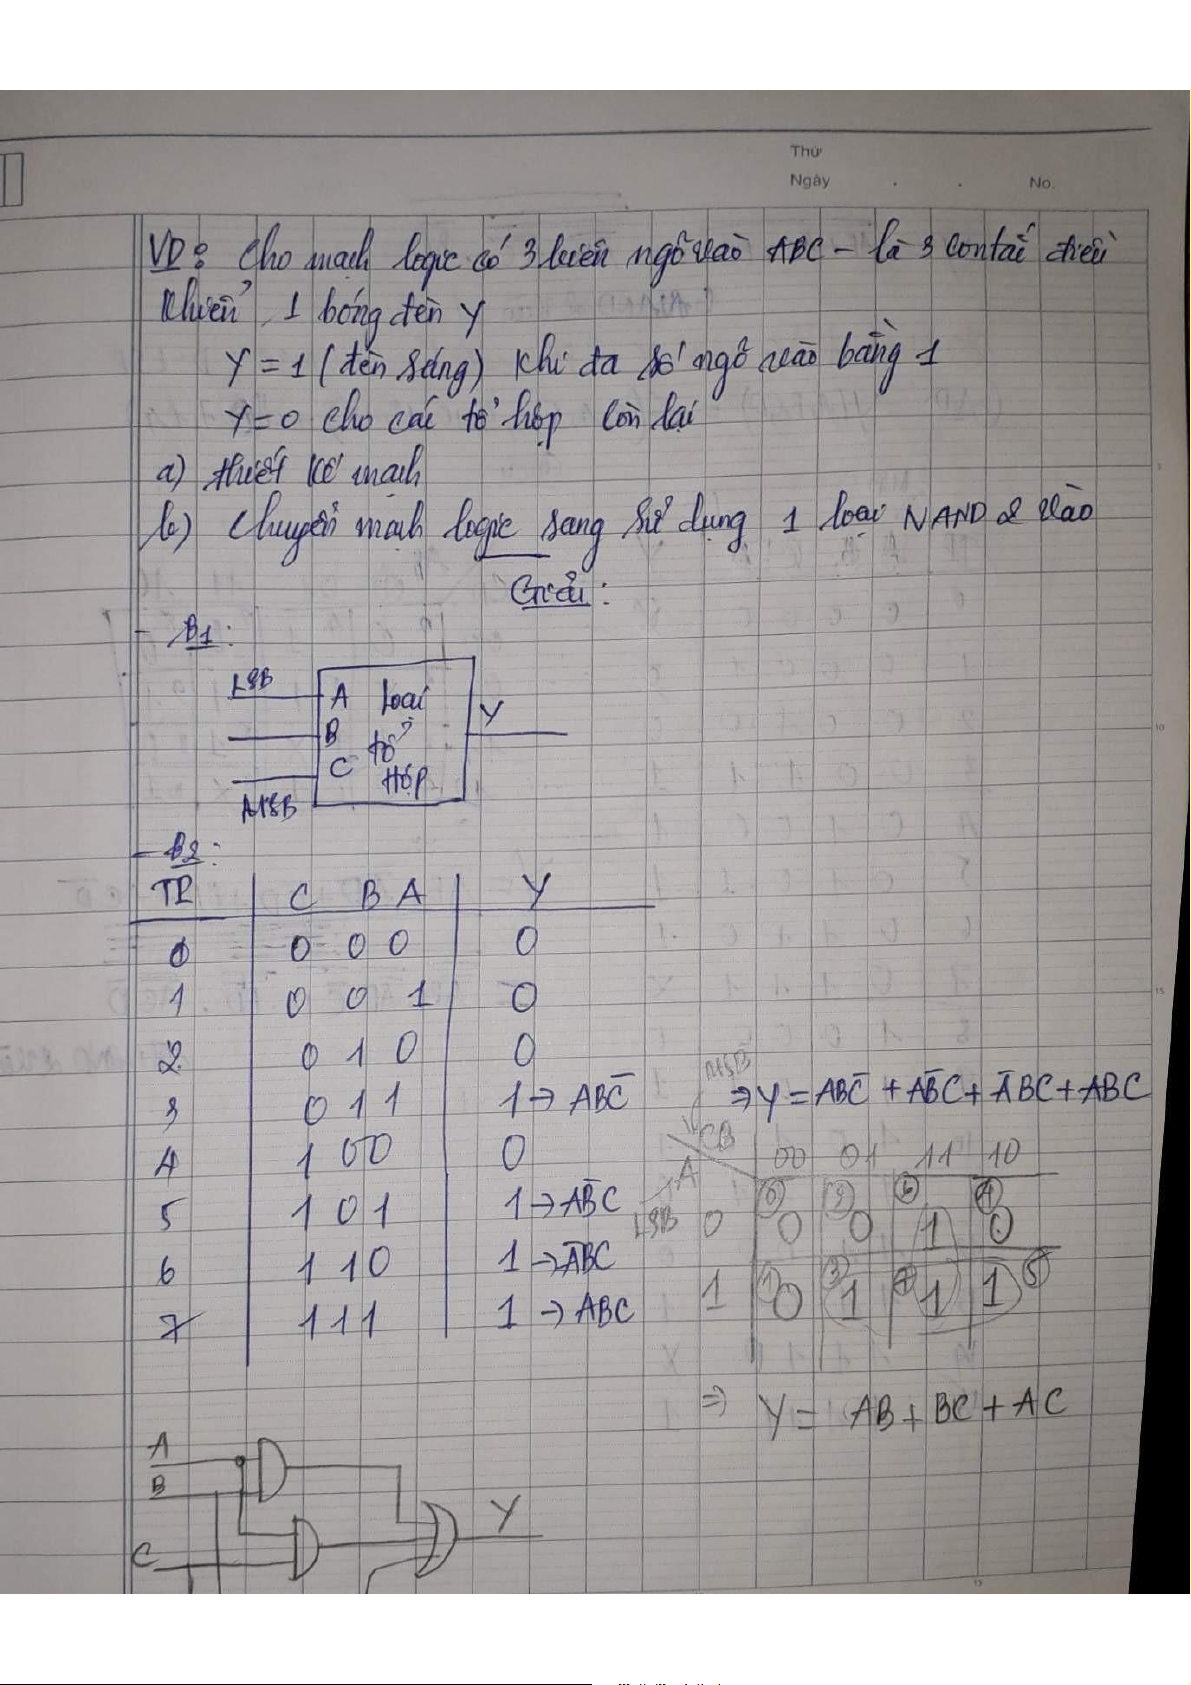 Thứ
Ngày . . No.
VD: Cho mạch logic có 3 biến ngõ vào ABC - là 3 contắc điều
khiển, 1 bóng đèn Y
Y = 1 (đèn sáng) khi đa số ngõ vào bằng 1
Y = 0 cho các tổ hợp còn lại
a) thiết kế mạch
b) chuyển mạch logic sang sử dụng 1 loại NAND 2 vào
Giải:
- B1:
LSB A loại Y
B tổ
C Hợp
MSB
- B2:
TP C B A Y
0 0 0 0 0
1 0 0 1 0
2 0 1 0 0
3 0 1 1 1 → ABC̅
⇒ Y = ABC̅ + AB̅C + A̅BC + ABC
4 1 0 0 0
5 1 0 1 1 → AB̅C
6 1 1 0 1 → A̅BC
7 1 1 1 1 → ABC
MSB
CB 00 01 11 10
A
LSB 0 0 0 2 0 6 1 4 0
1 1 0 3 1 7 1 1 5
⇒ Y = AB + BC + AC
A
B
C
Y